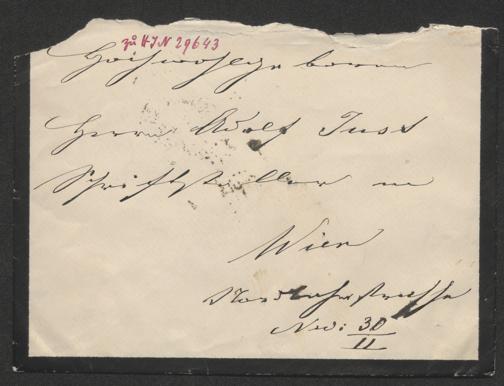 zu HIN 29643
Hochwohlgeboren
Herrn Adolf Just
Schriftsteller in
Wien
Nordbahnstrasse
Nro: 30
II